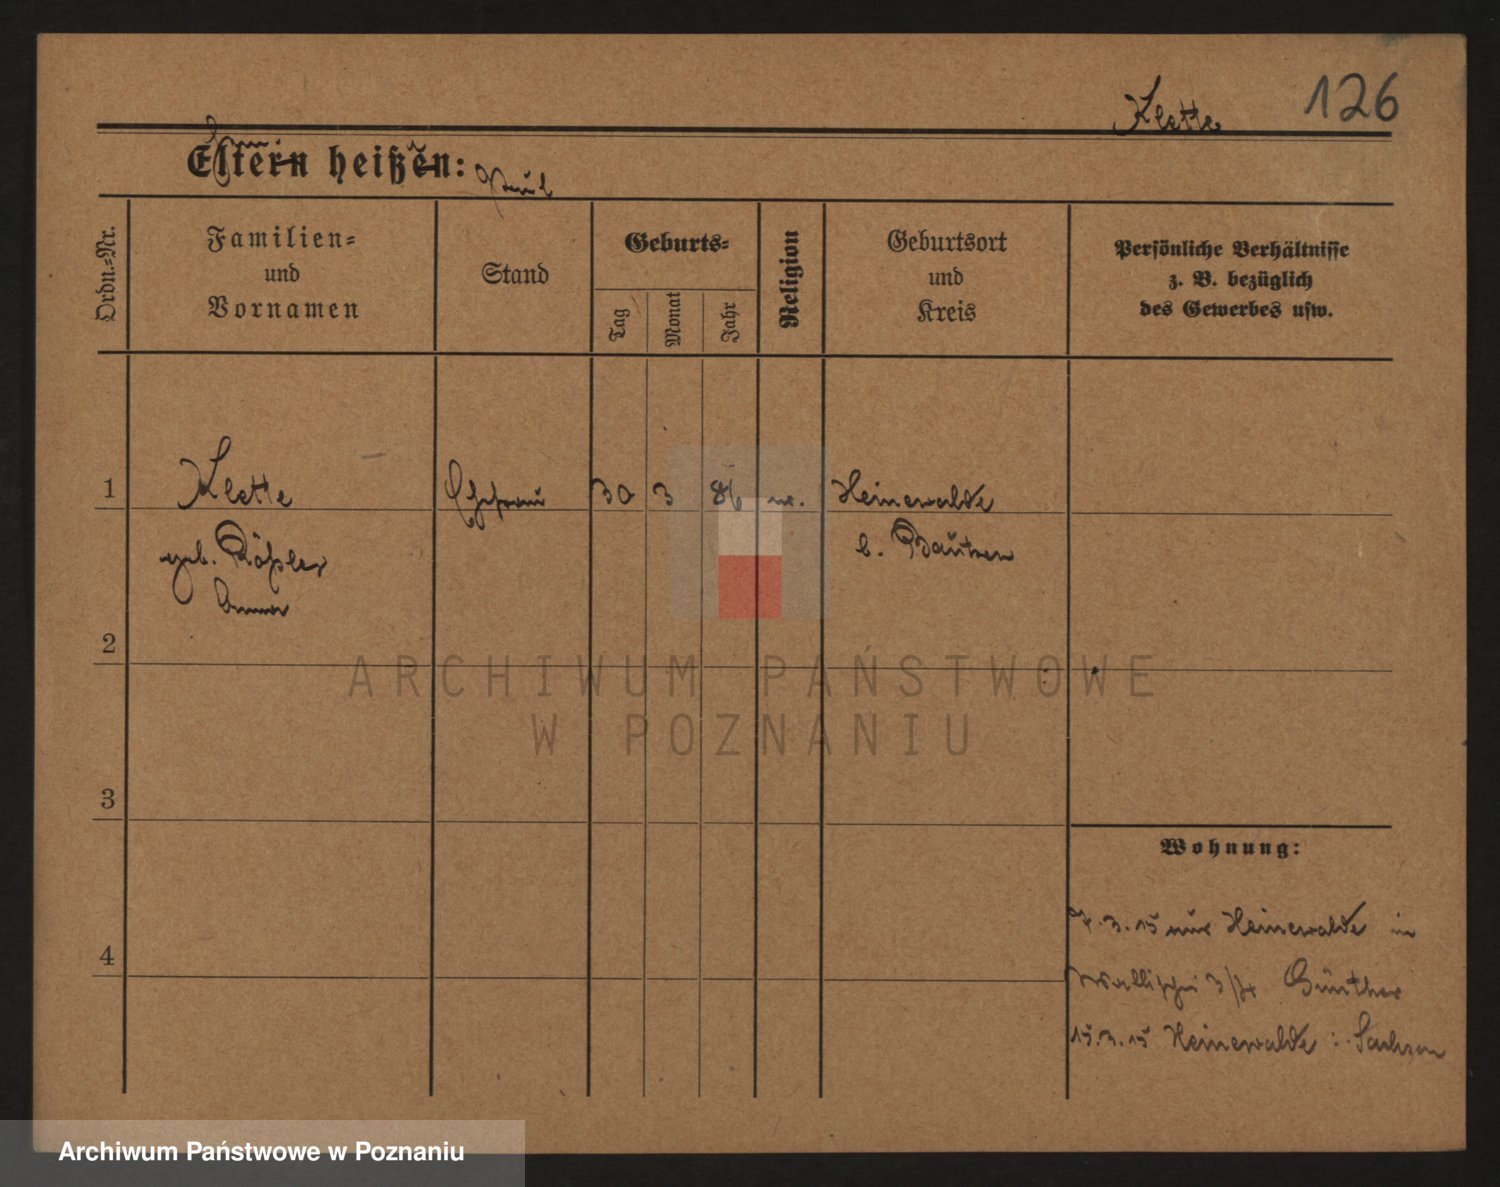 Klette 126
Eltern heißen:
Paul
Ordn.-Nr.
Familien-
und
Vornamen
Stand
Geburts-
Tag
Monat
Jahr
Religion
Geburtsort
und
Kreis
Persönliche Verhältnisse
z. B. bezüglich
des Gewerbes usw.
1 Klette Ehefrau 30 3 86 Heinewalde
geb. Rößler b. Bautzen
Anna
2
3
4
Wohnung:
3.15 Heinewalde in
Wallischei 3/4 Günther
15.3.15 Heinewalde Sachsen
ARCHIWUM PAŃSTWOWE
W POZNANIU
Archiwum Państwowe w Poznaniu